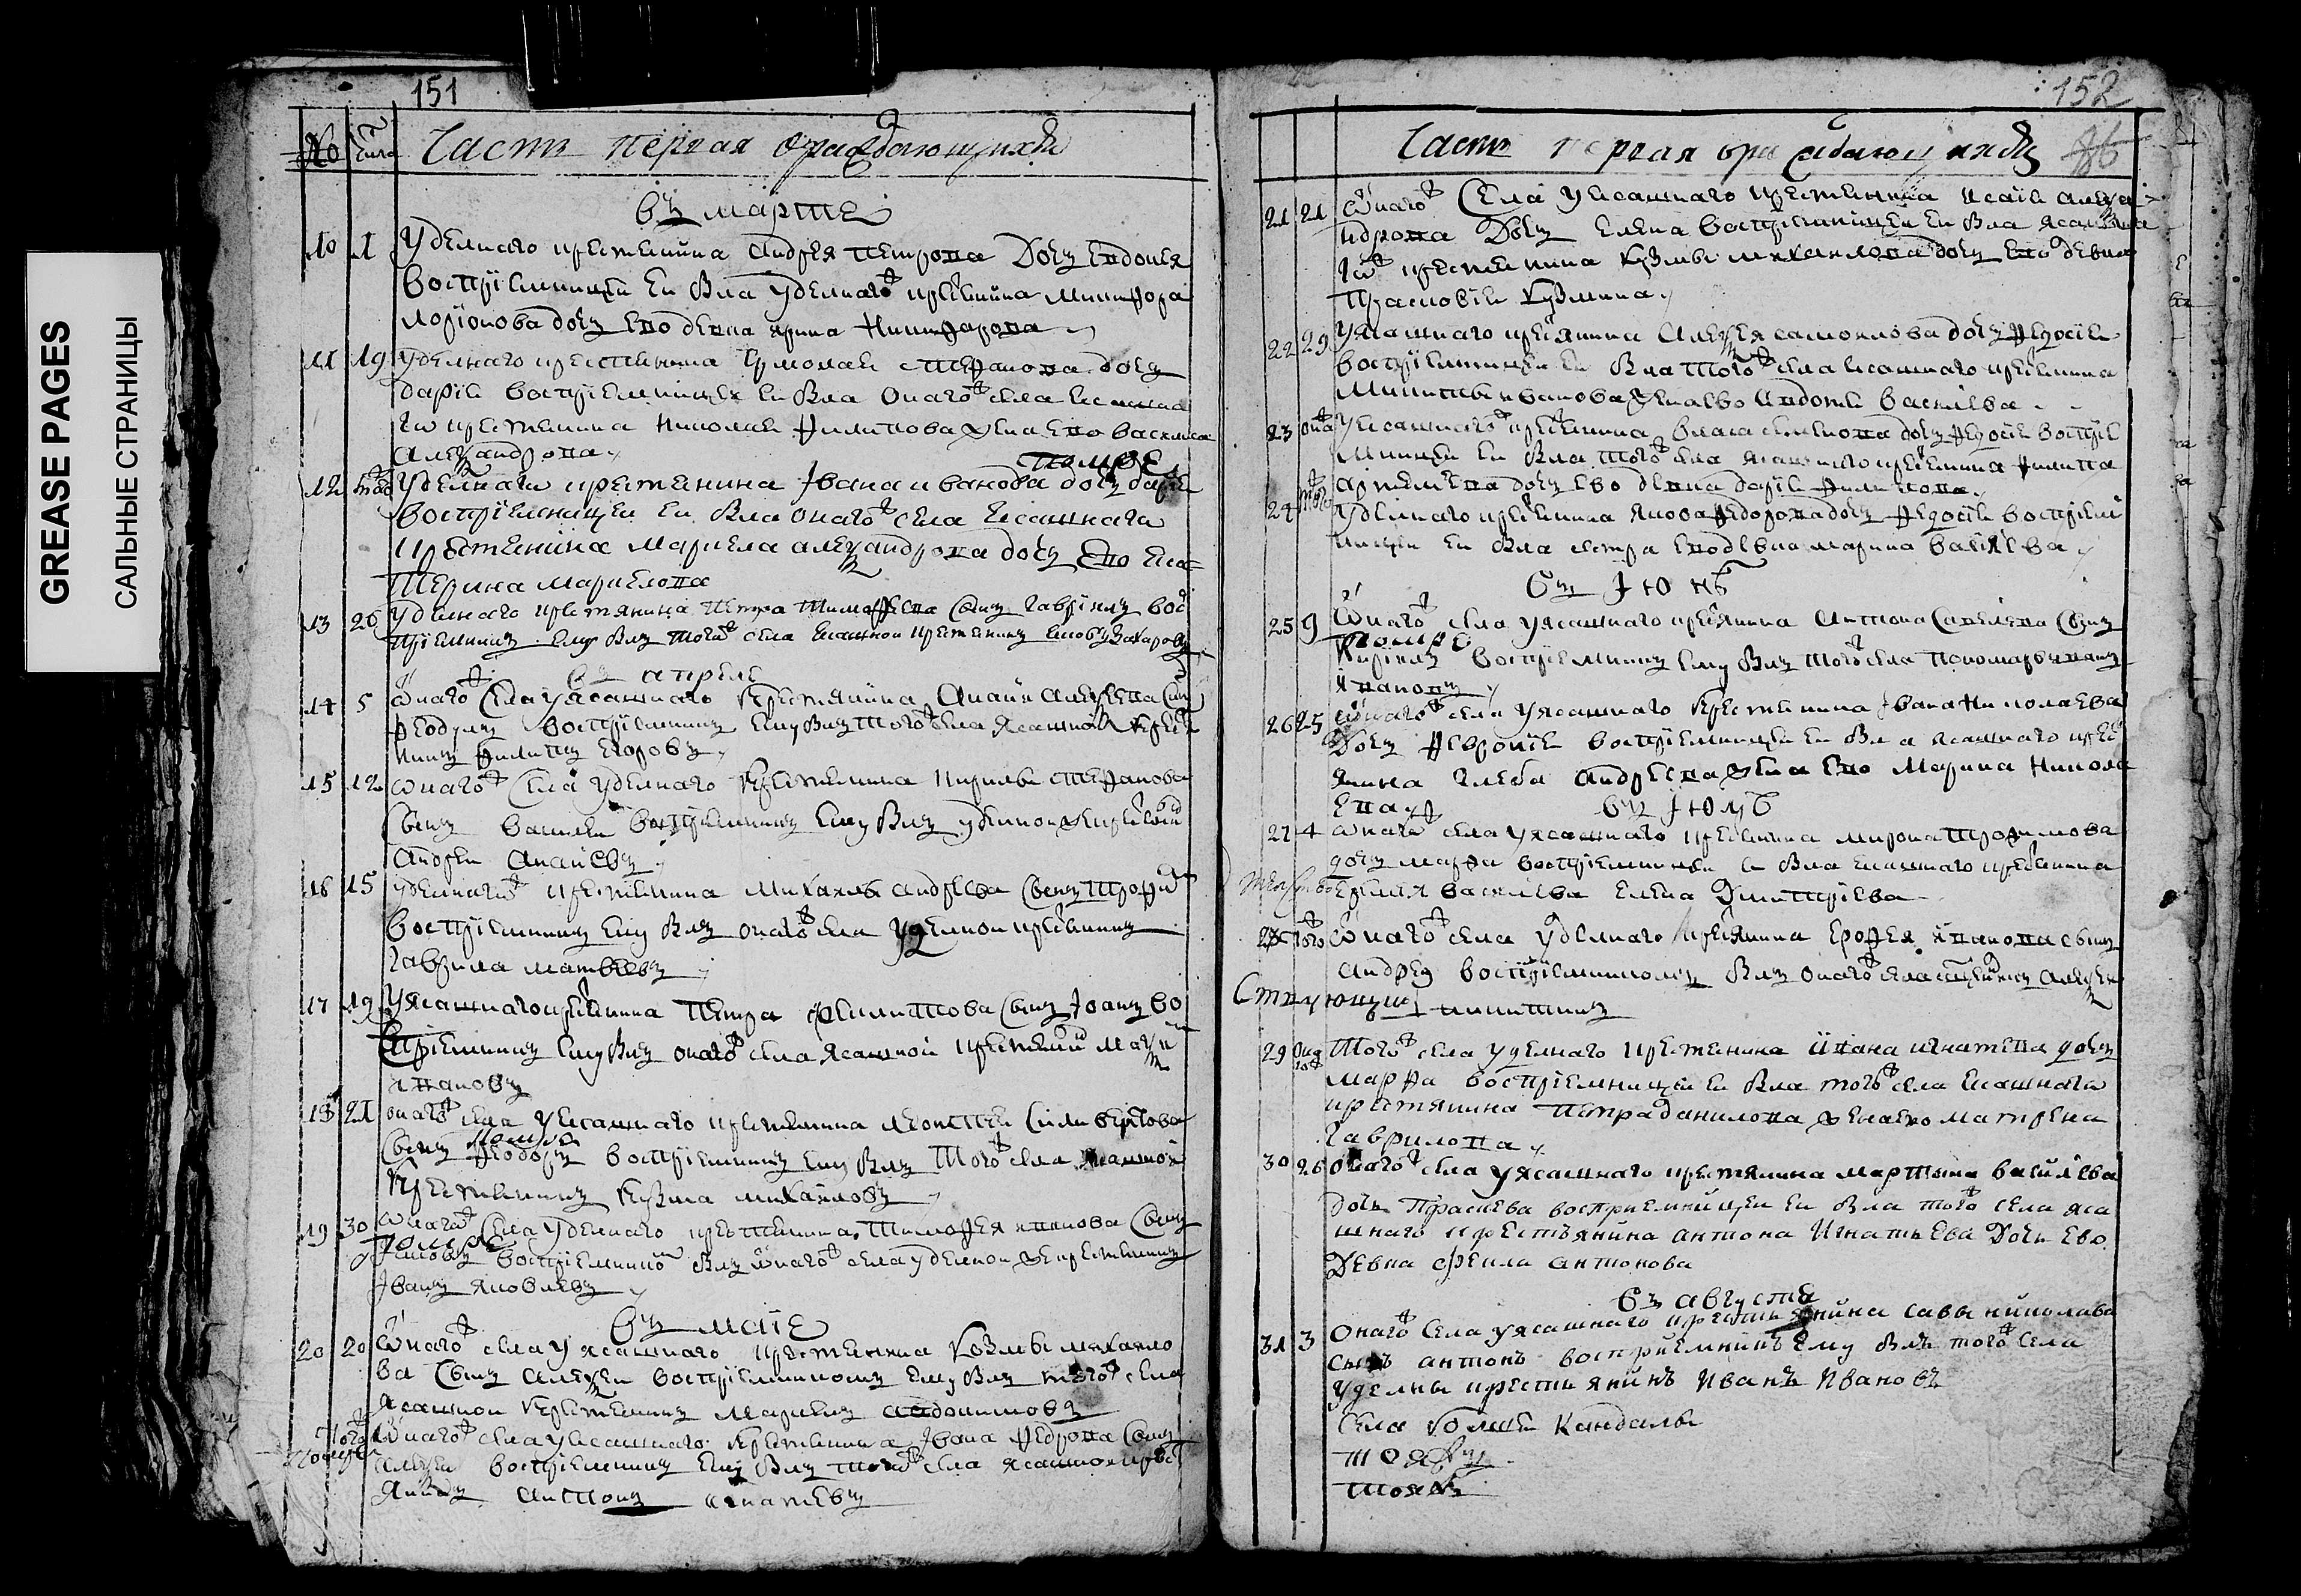 GREASE PAGES
САЛЬНЫЕ СТРАНИЦЫ
151
№ Число Часть первая о раждающихся
въ марте
10 1 Уделнаго крестьянина Андрея Петрова дочь Евдокея
восприемницей ей была уделнаго крестьянина
дочь ево девка Ирина Никифарова
11 19 Уделнаго крестьянина Ермолаи Стефанова дочь
Дария восприемницей ей была онаго села ясашна
го крестьянина Николаи Филипова жена ево Василиса
Александрова
помре
12 Уделнаго крестьянина Ивана Иванова дочь Дария
восприемницей ей была онаго села ясашнаго
крестьянина Маркела Александрова дочь ево Ека
терина Маркелова
13 26 Уделнаго крестьянина Петра Тимофеева сынъ Гавриилъ вос
приемникъ ему былъ того села ясашной крестьянинъ Яковъ Захаровъ
въ апреле
14 5 Онаго села уясашнаго крестьянина Анани Алексеева сынъ
Феодулъ восприемникъ ему былъ того села ясашной крестья
нинъ Филипъ Егоровъ
15 12 Онаго села уделнаго крестьянина Кирилы Стефанова
сынъ Василеи восприемникъ ему былъ уделной же крестьянинъ
Андреи Ананевъ
16 15 Уделнаго крестьянина Михаилы Андреева сынъ Трофим
восприемникъ ему былъ онаго села уделной крестьянинъ
Гаврила Матвеевъ
17 19 Уясашнаго крестьянина Петра Филипова сынъ Иоанъ во
сприемникъ ему былъ онаго села ясашной крестьянинъ
Ивановъ
18 21 Онаго села уясашнаго крестьянина Леонтеи Силивертова
помре
сынъ Феодоръ восприемникъ ему былъ того села ясашной
крестьянинъ Кузма Михаиловъ
19 30 Онаго села уделнаго крестьянина Тимофея Иванова сынъ
помре
Яковъ восприемникъ былъ онаго села уделной же крестьянинъ
Иванъ Яковлевъ
въ маие
20 20 Онаго села уясашнаго крестьянина Козмы Михаило
ва сынъ Алексеи восприемникомъ ему былъ того села
ясашной крестьянинъ Маркелъ
того Онаго села уясашнаго крестьянина Ивана Федрова сынъ
помре Алексеи восприемникъ ему былъ того села ясашной крест
янинъ Антонъ Игнатевъ
152
Часть первая о раждающихся 86
21 21 Онаго села уясашнаго крестьянина Исаии Алекса
ндрова дочь Елена восприемницей ей была ясашна
го крестьянина Кузмы Михаилова дочь ево девка
Прасковия Кузмина
22 29 Уясашнаго крестьянина Алексея Самоилова дочь Федосия
восприемницей ей была того села ясашнаго крестьянина
Микиты Иванова жена ево Авдотия Василева
23 Уясашнаго крестьянина Власа Семенова дочь Федосия восприе
мницей ей была того села ясашнаго крестьянина Филипа
Артемева дочь ево девка Дария Филипова
24 того Уделнаго крестьянина Якова Федорова дочь Федосия восприем
ницей ей была сестра ево девка Марина Василева
въ Июне
25 9 Онаго села уясашнаго крестьянина Антона Савелева сынъ
помре
Кирилъ восприемникъ ему былъ того села пономарь Иванъ
Ивановъ
26 25 Онаго села уясашнаго крестьянина Ивана Николаева
дочь Феврония восприемницей ей была ясашнаго крест
янина Глеба Андреева жена ево Марина Никола
ева
въ Июле
27 4 Онаго села уясашнаго крестьянина Мирона Трофимова
дочь Марфа восприемницей ей была ясашнаго крестьянина
Василева Елена Дмитриева
28 того Онаго села уделнаго крестьянина Ерофея Иванова сынъ
Андреи восприемникомъ былъ онаго села
Никитинъ
29 Того села уделнаго крестьянина Ивана Игнатева дочь
Марфа восприемницей ей была того села ясашнаго
крестянина Петра Данилова жена ево Матрена
Гаврилова
30 26 Онаго села уясашнаго крестянина Мартына Василева
дочь Праскева восприемницеи ей была того села яса
шнаго крестьянина Антона Игнатьева дочь ево
девка Фекла Антонова
въ августе
31 3 Онаго села уясашнаго крестьянина Савы Николава
сынъ Антонъ восприемникъ ему былъ того села
уделны крестьянинъ Иванъ Ивановъ
Села Кандалы